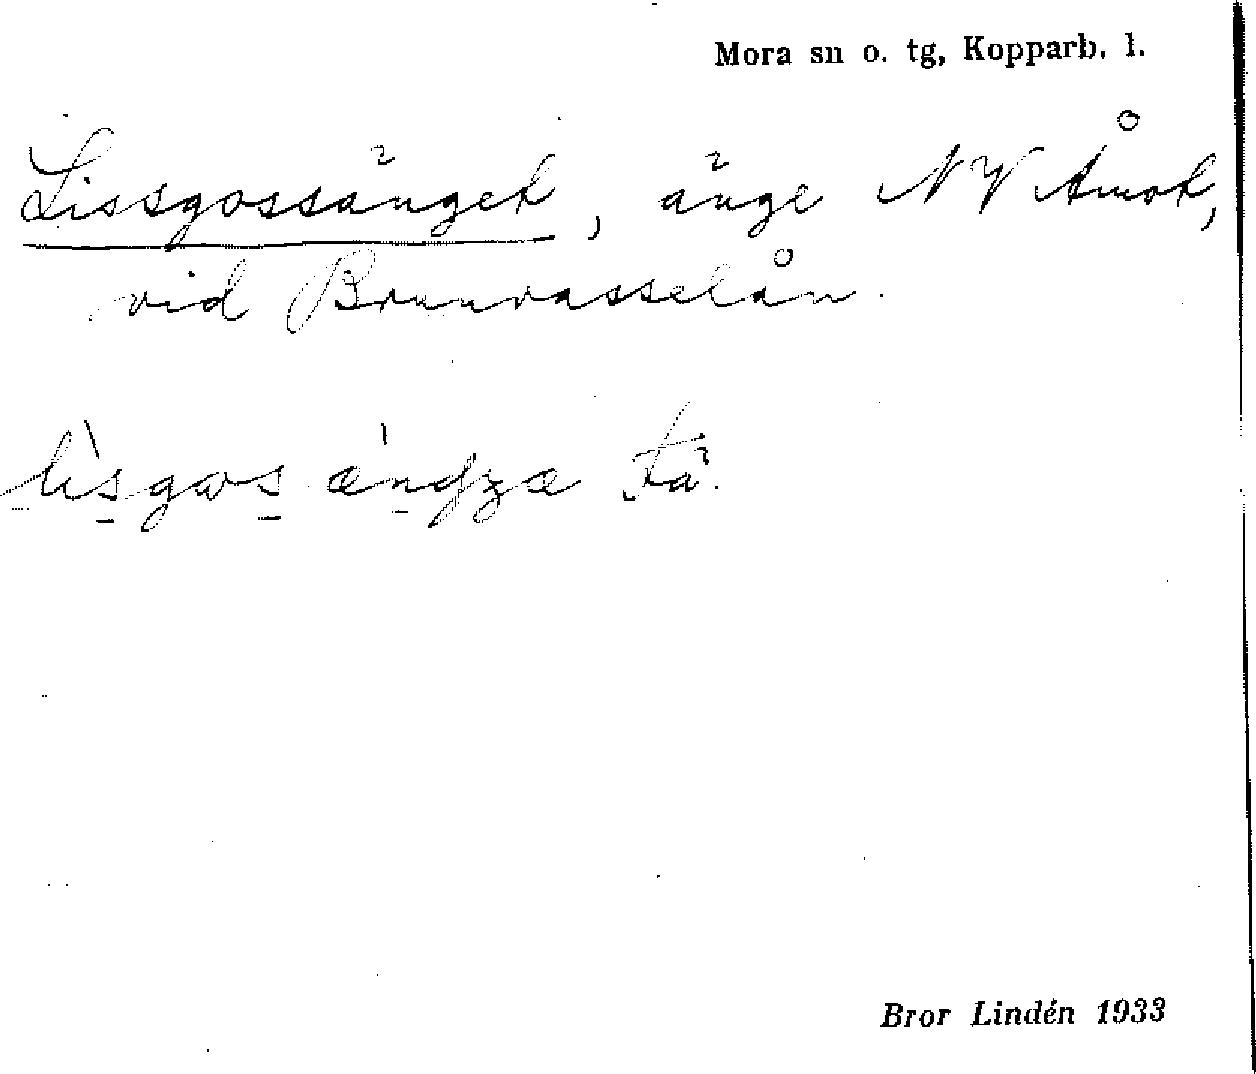 Mora sn o. tg, Kopparb. l.
Lissgossänget, änge NV Åmot,
vid Brunvasselån.
Bror Lindén 1933